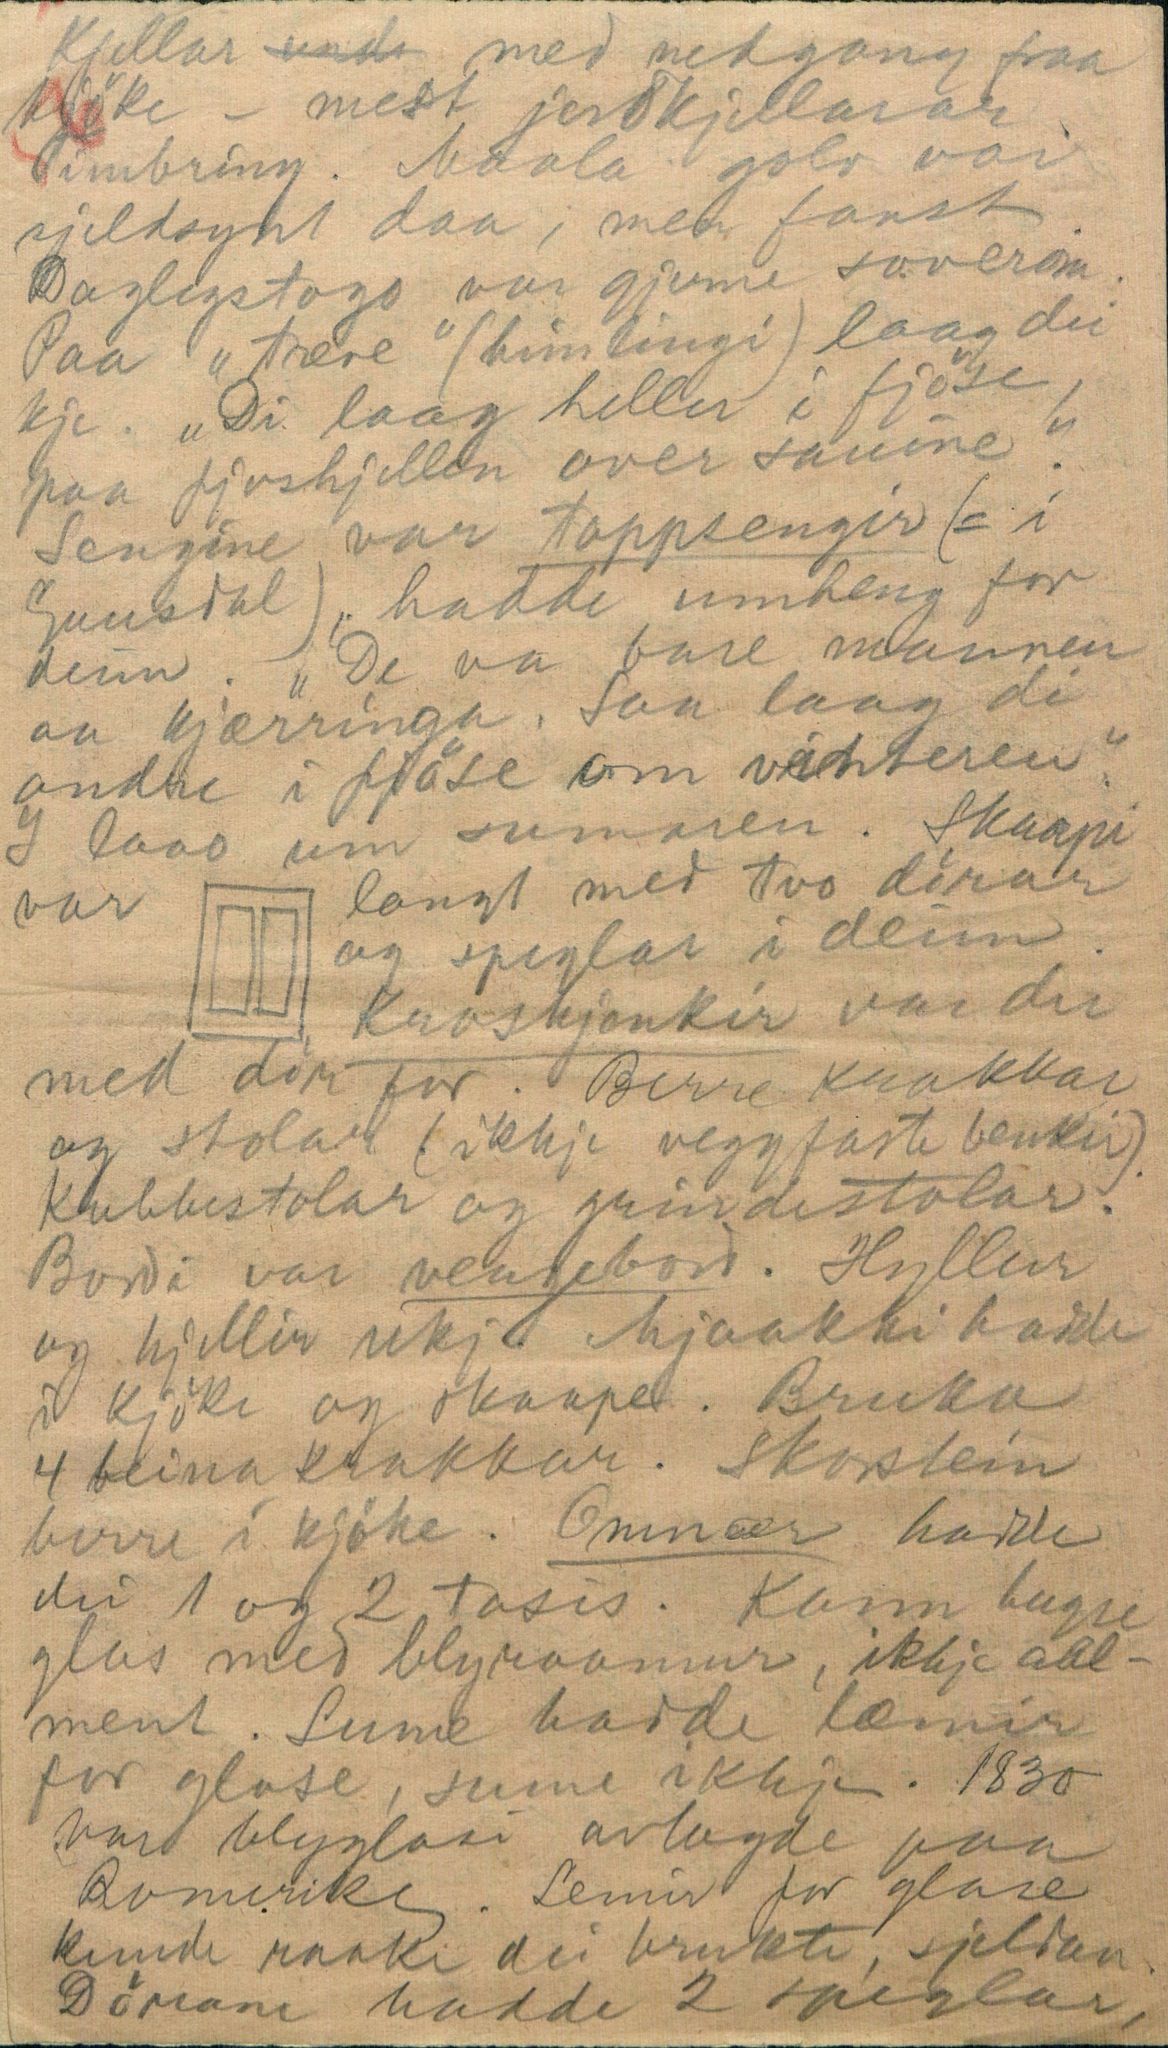 Kjellar unde med nedgang fraa
kjöke - mest jordkjellarar.
Timbring. Maala golv var
sjeldsynt daa, men fanst.
Daglegstogo var gjerne soverom.
Paa "træve" (himlingi) laag dei
kje. "Di laag heller i fjöse,
paa fjoshjellen over sauine".
Sengine var toppsengir (= i
Gausdal), hadde umheng for
deim. "De va bare mannen
aa kjærringa. Saa laag di
andre i fjöse om vinteren".
I laao um sumaren. Skaapi
var langt med tvo dörar
og speglar i deim.
Kroskjonkir var der
med dör for. Berre krakkar
og stolar (ikkje veggfaste benkir).
Kubbestolar og grindestolar.
Bordi var vengebord. Hyllur
og hjellir ikkje. Mjaakki hadde
i kjöke og skaape. Bruka
4 beina krakkar. Skorstein
berre i kjöke. Omnær hadde
dei 1 og 2 tasis. Kann hugse
glas med blyraamur, ikkje aal-
ment. Sume hadde læmir
for glase, sume ikkje. 1830
var blyglasi avlagde paa
Romerike. Lemir for glase
kunde raake dei brukte, sjeldan.
Dörane hadde 2 speglar,